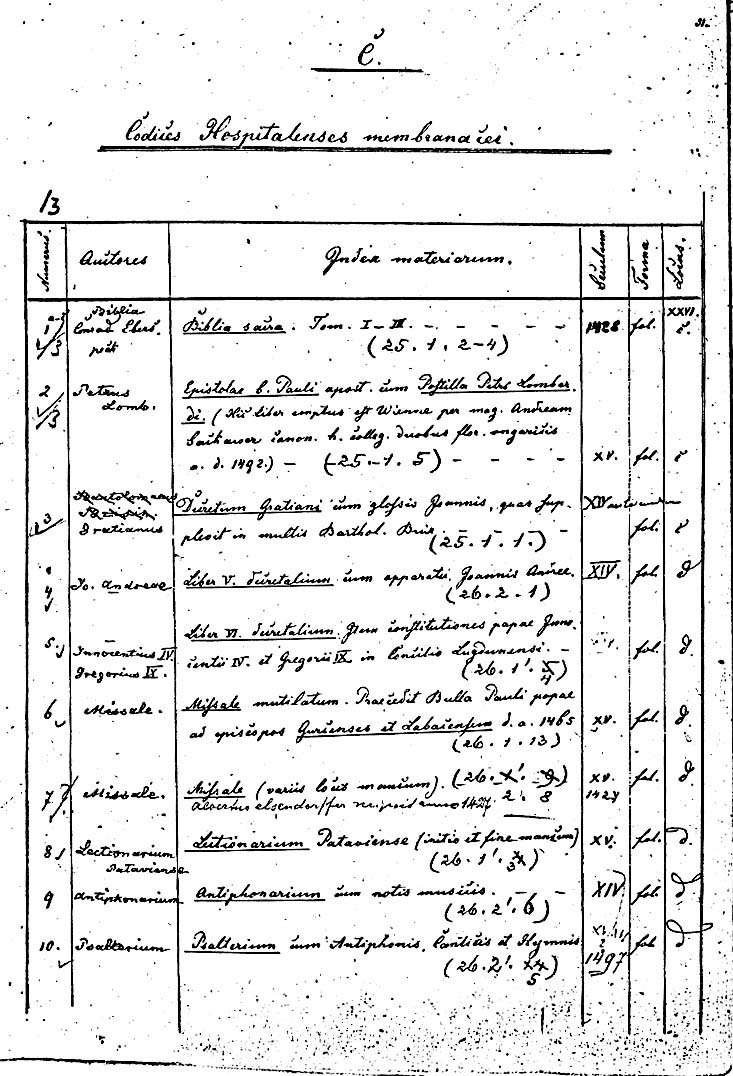 C.
Codices Hospitalenses membranacei.
13
Numerus. Auctores Index materiarum. Seculum Forma Locus.
Biblia XXVI.
1 Conrad Ebers. Biblia sacra. Tom. I – III. – – – – – 1428 fol. c.
(25. 1. 2–4)
2 Petrus Epistolae b. Pauli apost. cum Postilla Petri Lombar.
Lomb. di. (Hic liber emptus est Wienne per mag. Andream
canon. h. colleg. duobus flor. ungaricis
a. d. 1492.) – (25. – 1. 5) – – – – xv. fol. c
Bartolomaeus
3 Brixin. Decretum Gratiani cum glossis Joannis, quas sup- XIV
Gratianus plevit in multis Barthol. Brix. – – – fol. c
(25. 1. 1.)
4 Jo. Andreae Liber V. decretalium cum apparatu Joannis Andree. XIV. fol. d
(26. 2. 1)
Liber VI. decretalium. Item constitutiones papae Inno-
5. Innocentius IV centii IV. et Gregorii IX in Concilio Lugdunensi. – fol. d.
Gregorius IX. (26. 1'. 4)
6 Missale. Missale mutilatum. Praecedit Bulla Pauli papae
ad episcopos Gurcenses et Labacensem d. a. 1465 xv. fol. d.
(26. 1. 13)
7 Missale. Missale (variis locis mancum). (26. 1'. 9) xv. fol. d
2. 8 1427
anno 1427
8 Lectionarium Lectionarium Pataviense (initio et fine mancum) xv. fol. d.
Pataviense (26. 1'. 3)
9 Antiphonarium Antiphonarium cum notis musicis. – – XIV fol. d
(26. 2'. 6)
10. Psalterium Psalterium cum Antiphonis, Canticis et Hymnis fol d
(26. 2'. 5) 1497